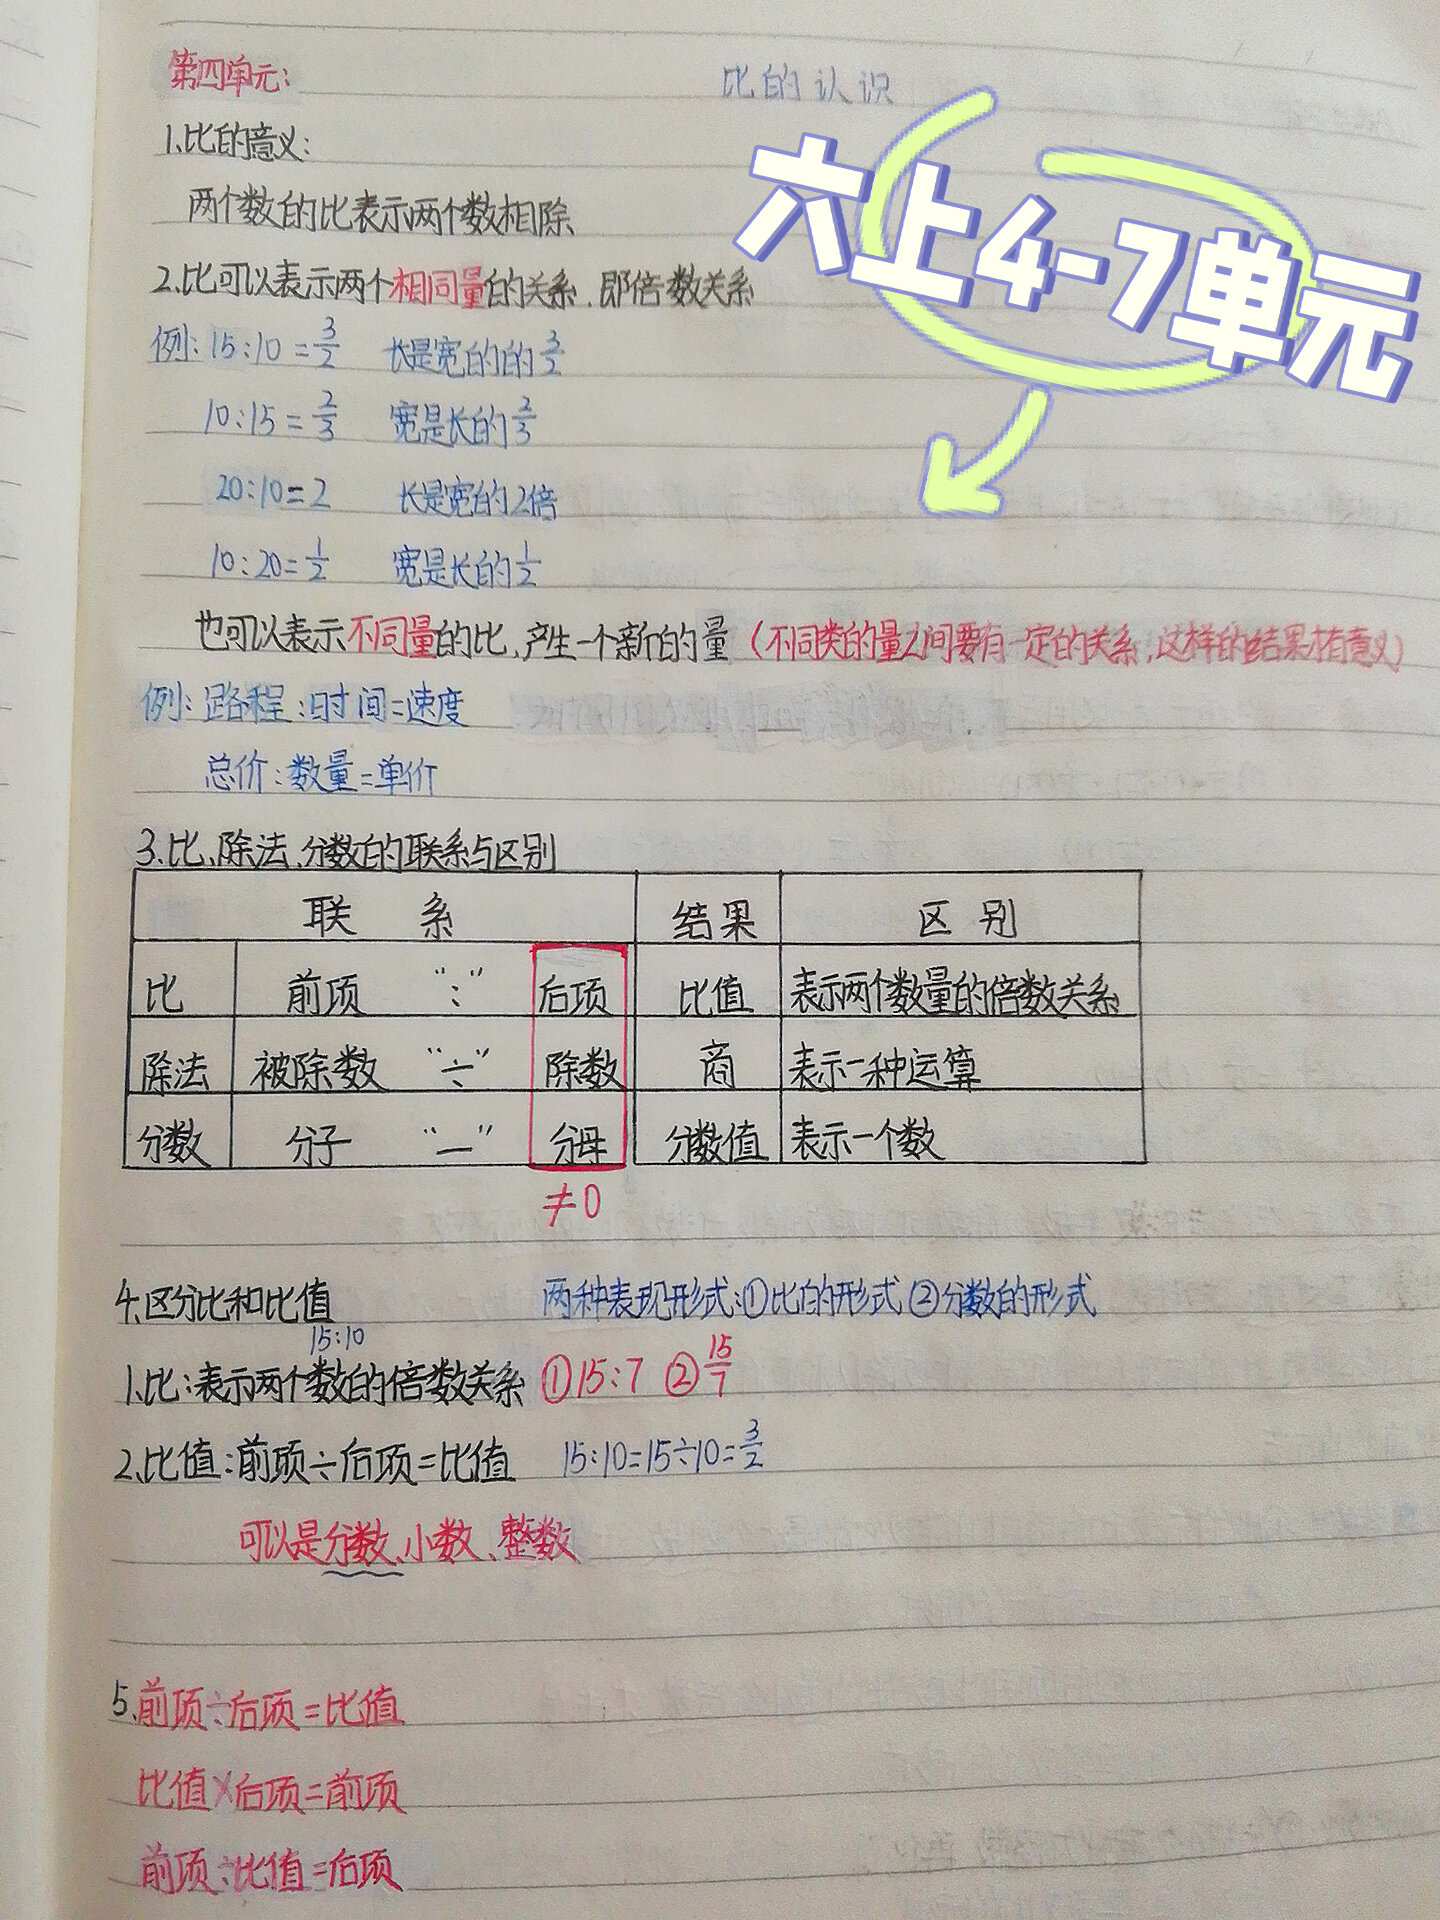 第四单元:
比的认识
六上4-7单元
1.比的意义:
两个数的比表示两个数相除
2.比可以表示两个相同量的关系.即倍数关系
例:15:10=3/2 长是宽的的3/2
10:15=2/3 宽是长的2/3
20:10=2 长是宽的2倍
10:20=1/2 宽是长的1/2
也可以表示不同量的比,产生一个新的量(不同类的量之间要有一定的关系,这样的结果才有意义)
例:路程:时间=速度
总价:数量=单价
3.比、除法、分数的联系与区别
联系 结果 区别
比 前项 “:” 后项 比值 表示两个数量的倍数关系
除法 被除数 “÷” 除数 商 表示一种运算
分数 分子 “—” 分母 分数值 表示一个数
≠0
4.区分比和比值 两种表现形式:①比的形式②分数的形式
15:10
1.比:表示两个数的倍数关系 ①15:7 ②15/7
2.比值:前项÷后项=比值 15:10=15÷10=3/2
可以是分数、小数、整数
5.前项÷后项=比值
比值×后项=前项
前项÷比值=后项